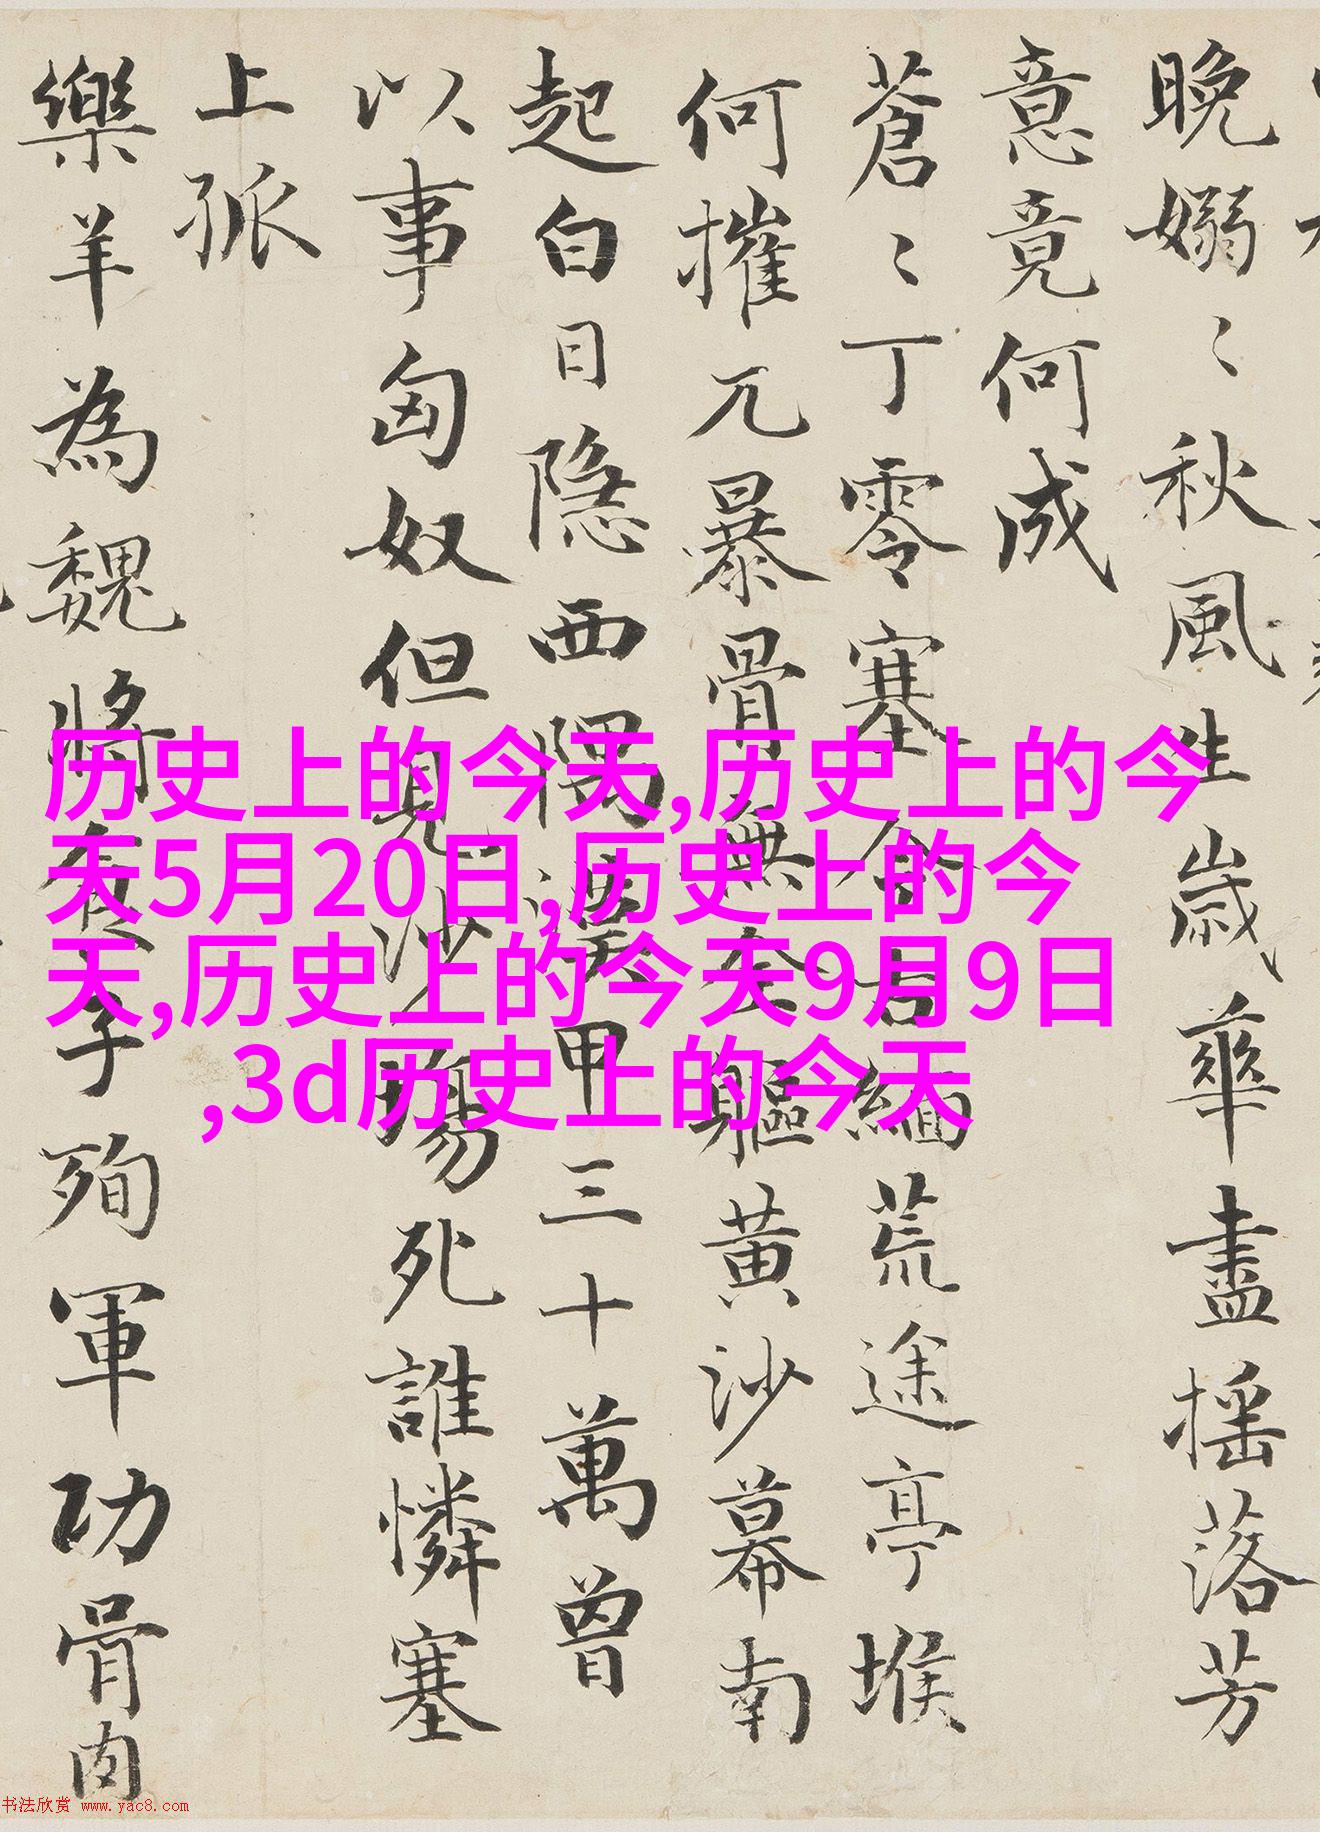 晚嫋〻秋風生歲華盡摇落芳
意竟何成
蒼〻丁零塞今古緬荒途亭堠
何摧兀暴骨無全軀黄沙幕南
起白日隐西隅漢甲三十萬曾
以事匈奴但見沙塲死誰憐塞
上孤
樂羊為魏將食子殉軍功骨肉
历史上的今天,历史上的今
天5月20日,历史上的今
天,历史上的今天9月9日
,3d历史上的今天
书法欣赏 www.yac8.com